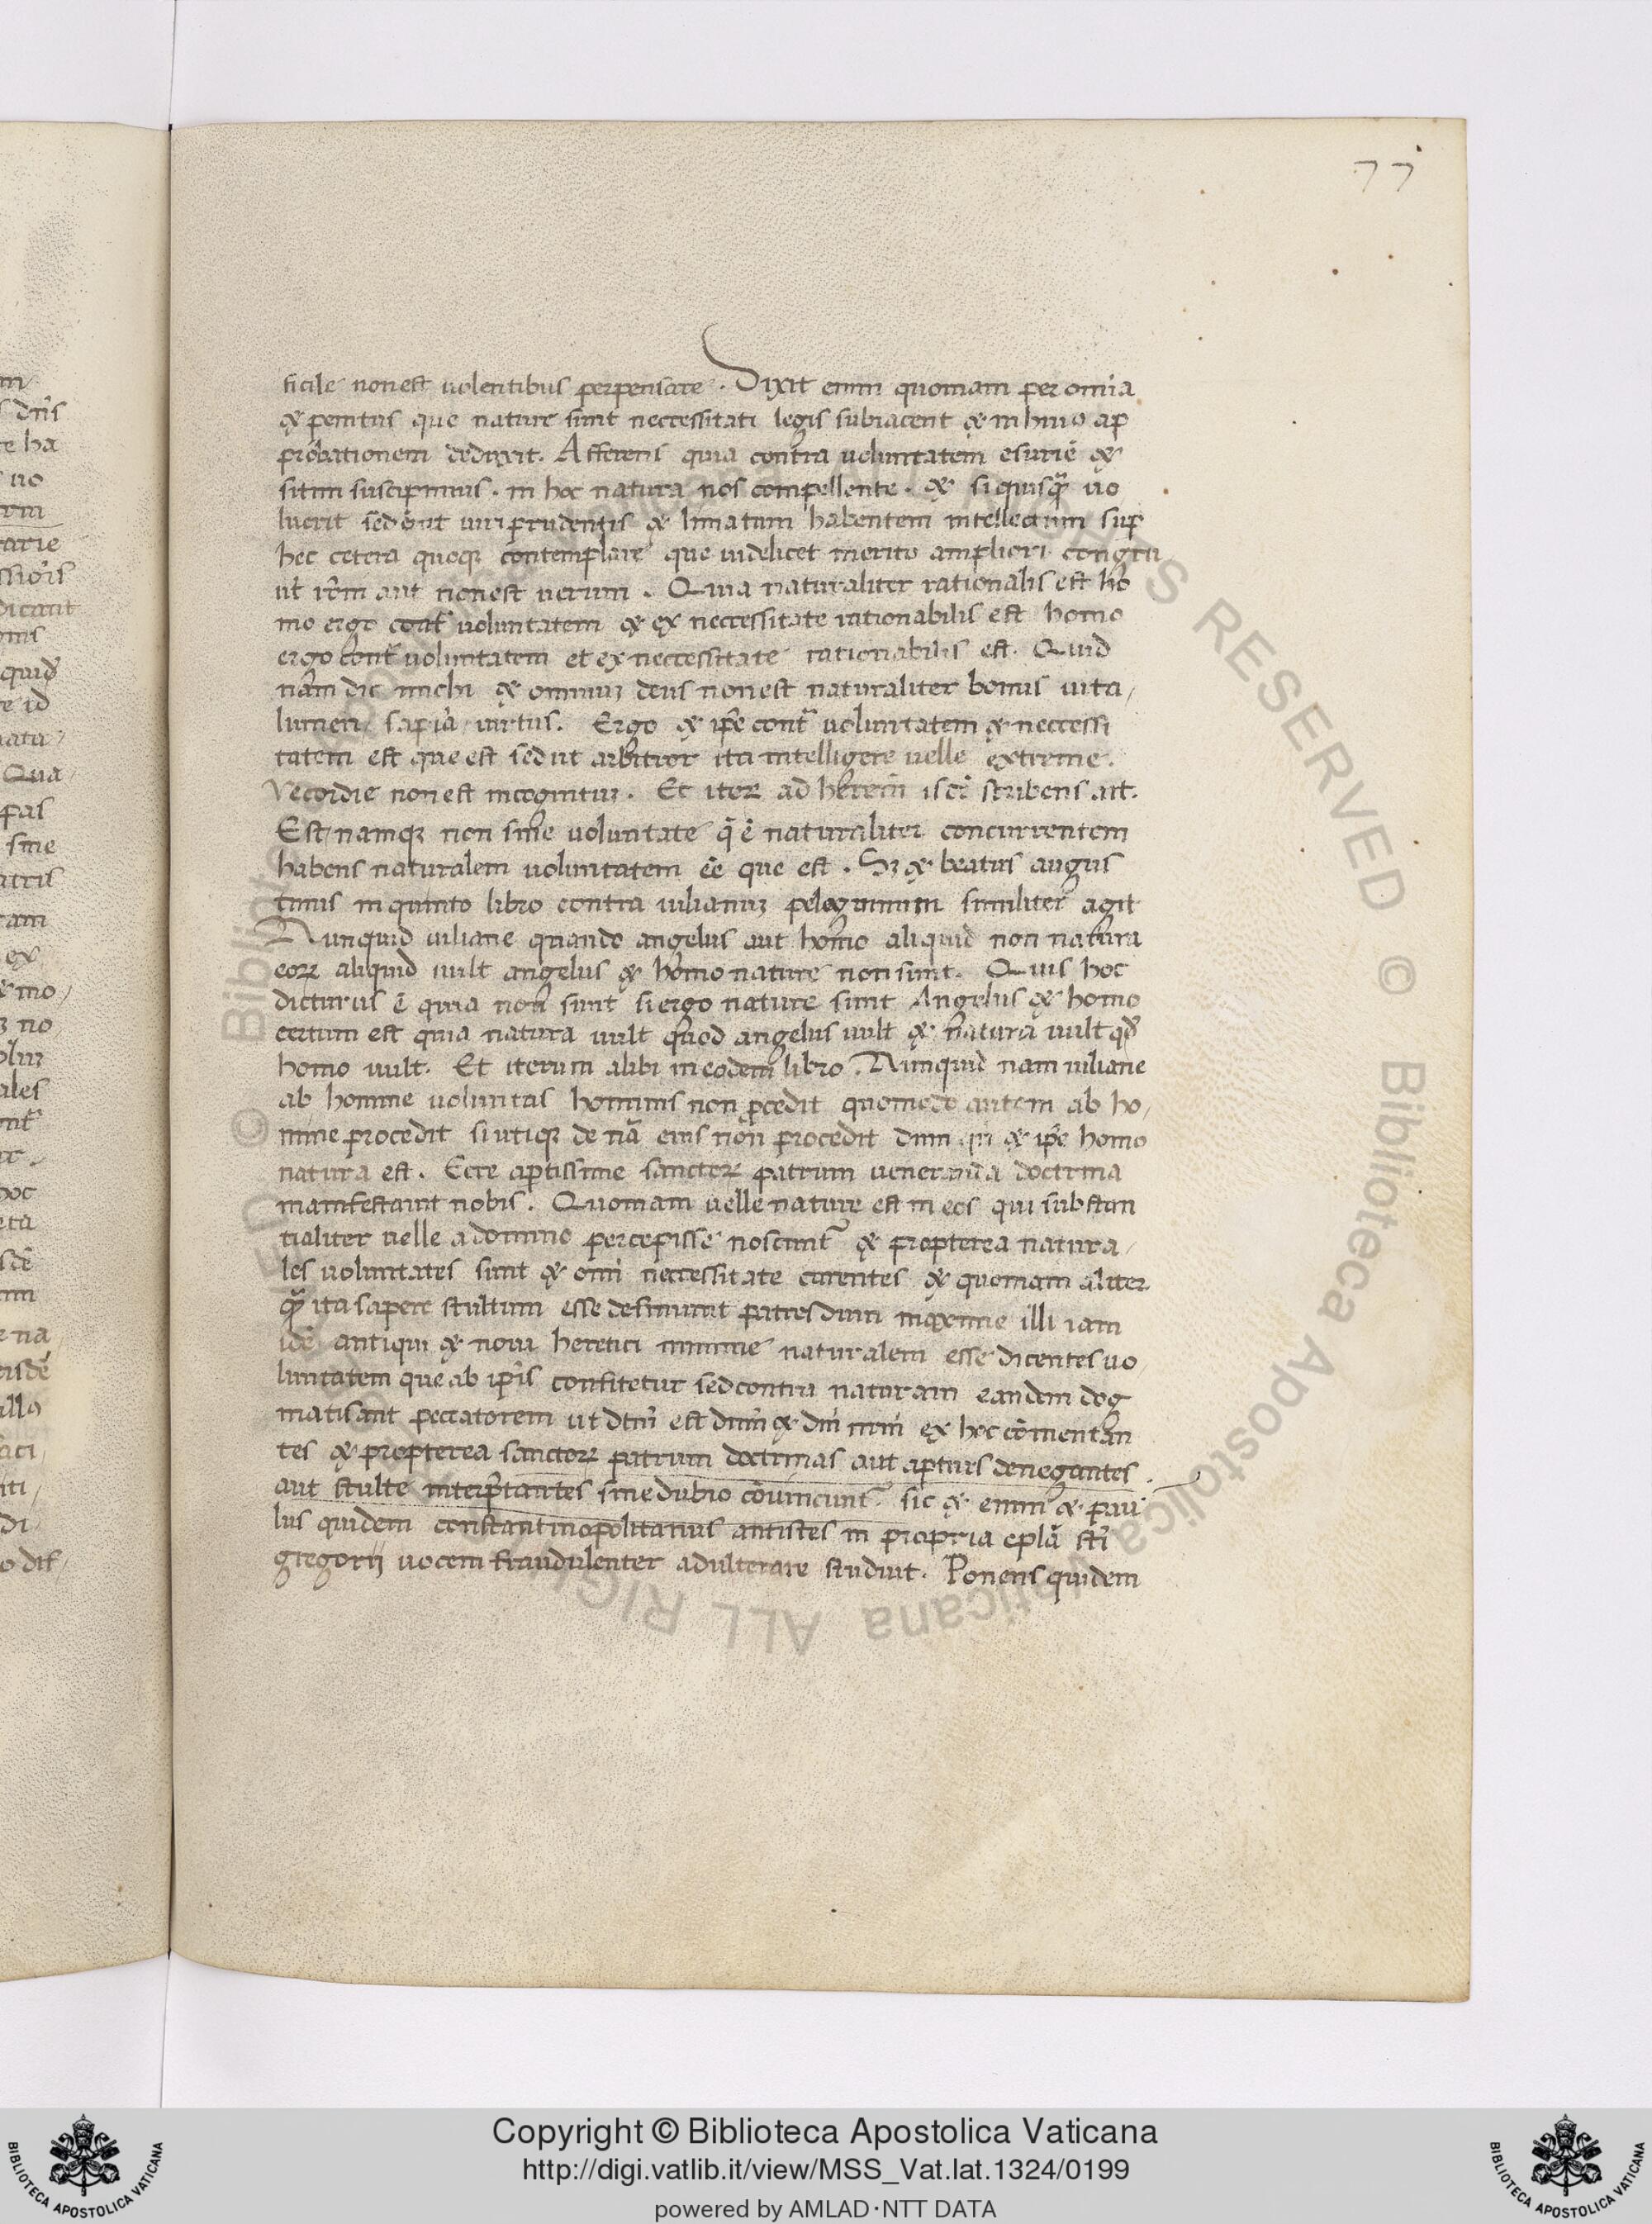 77
ficile non est uolentibus perpensare. Dixit enim quoniam per omīa
& penitus que nature sunt neccessitati legis subiacent & in huiᵒ ap
probationem deduxit. Afferens quia contra uoluntatem esuriē &
sitim suscipimus. in hoc natura nos compellente. & si quisq̄ uo
luerit sed ut uiri prudentis & limatum habentem intellectum sup̄
hec cetera queq; contemplare que uidelicet merito ampliori congru
ut rōm aut non est uerum. Quia naturaliter rationalis est ho
mo ergo cont̄ uoluntatem & ex neccessitate rationabilis est homo
ergo cont̄ uoluntatem et ex neccessitate rationabilis est. Quid
nam dic michi & omniuꝫ deus non est naturaliter bonus uita/
lumen/ sapīa/ uirtus. Ergo & ip̄e cont̄ uoluntatem & neccessi
tatem est que est sed ut arbitror ita intelligere uelle extreme.
Vecordie non est incognituꝫ. Et iteꝝ ad heremū scribens ait.
Est namqꝫ non sine uoluntate q̄ ē naturaliter concurrentem
habens naturalem uoluntatem eē que est. Sꝫ & beatus augus
tinus in quinto libro contra iulianuꝫ pelogianum similiter agit
Nunquid iuliane quando angelus aut homo aliquid non natura
eoꝝ aliquid uult angelus & homo nature non sunt. Quis hoc
dicturus ē quia non sunt si ergo nature sunt Angelus & homo
certum est quia natura uult quod angelus uult & natura uult qd̄
homo uult. Et iterum alibi in eodem libro. Nunquid nam iuliane
ab homine uoluntas hominis non p̄cedit quomodo autem ab ho/
mine procedit si utiqꝫ de nā eius non procedit dum qui & ip̄e homo
natura est. Ecce aptissime sanctoꝝ patrum ueneranda doctrina
manifestauit nobis. Quoniam uelle nature est in eos qui substan
tialiter uelle a domino percepisse noscunt̄ & propterea natura/
les uoluntates sunt & omī neccessitate carentes & quoniam aliter
q̄ ita sapere stultum esse definiunt patres dum maxime illi iam
idē antiqui & noui heretici minime naturalem esse dicentes uo
luntatem que ab ip̄is confitetur sed contra naturam eandem dog
matisant peccatorem ut dtm̄ est dm̄ & dn̄i nr̄i ex hoc cōmentan
tes & propterea sanctoꝝ patrum doctrinas aut apturs denegantes
aut stulte interp̄tantes sine dubio cōuincunt̄. sic & enim & pau
lus quidem constantinopolitanus antistes in propria epl̄a sti
gregorij uocem fraudulenter adulterare studuit. Ponens quidem
Copyright © Biblioteca Apostolica Vaticana
http://digi.vatlib.it/view/MSS_Vat.lat.1324/0199
powered by AMLAD·NTT DATA